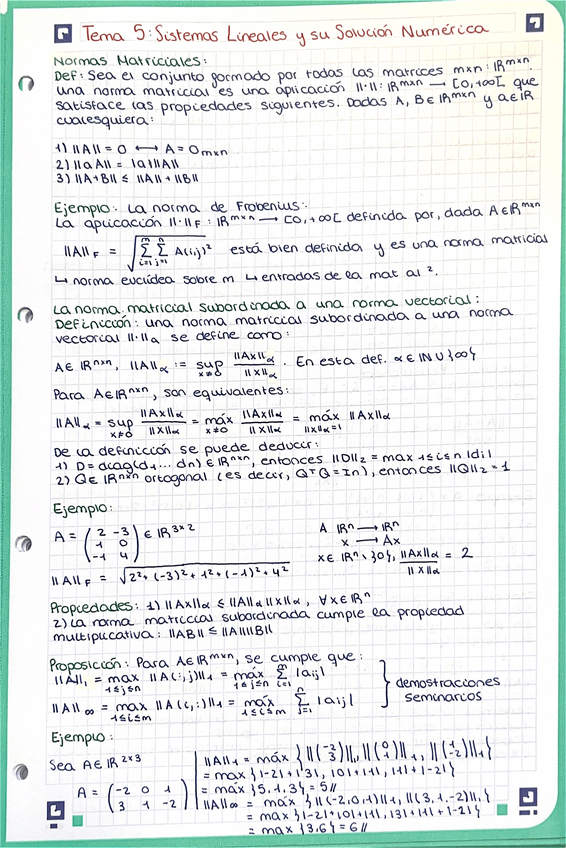 Tema 5: Sistemas Lineales y su Solución Numérica
Normas Matriciales:
Def: Sea el conjunto formado por todas las matrices m×n: ℝᵐˣⁿ.
una norma matricial es una aplicación ||·||: ℝᵐˣⁿ → [0,+∞[ que
satisface las propiedades siguientes. Dadas A, B ∈ ℝᵐˣⁿ y a ∈ ℝ
cualesquiera:
1) ||A|| = 0 ⟷ A = 0m×n
2) ||aA|| = |a| ||A||
3) ||A+B|| ≤ ||A|| + ||B||
Ejemplo: La norma de Frobenius:
La aplicación ||·||F : ℝᵐˣⁿ → [0,+∞[ definida por, dada A∈ℝᵐˣⁿ
||A||F = √(Σᵢ₌₁ᵐ Σⱼ₌₁ⁿ A(i,j)²) está bien definida y es una norma matricial
↳ norma euclídea sobre m ↳ entradas de la mat al ².
La norma matricial subordinada a una norma vectorial:
Definición: una norma matricial subordinada a una norma
vectorial ||·||α se define como:
A∈ ℝⁿˣⁿ, ||A||α := sup x≠0 ||Ax||α / ||x||α . En esta def. α ∈ ℕ ∪ {∞}
Para A∈ℝⁿˣⁿ, son equivalentes:
||A||α = sup x≠0 ||Ax||α / ||x||α = máx x≠0 ||Ax||α / ||x||α = máx ||x||α=1 ||Ax||α
De la definición se puede deducir:
1) D = diag(d₁ ... dn) ∈ ℝⁿˣⁿ, entonces ||D||₂ = max 1≤i≤n |di|
2) Q∈ ℝⁿˣⁿ ortogonal (es decir, QᵀQ = In), entonces ||Q||₂ = 1
Ejemplo:
A = (2 -3
1 0
-1 4) ∈ ℝ³ˣ²
||A||F = √(2² + (-3)² + 1² + (-1)² + 4²)
A ℝⁿ → ℝⁿ
x → Ax
x ∈ ℝⁿ \ {0}, ||Ax||α / ||x||α = 2
Propiedades: 1) ||Ax||α ≤ ||A||α ||x||α, ∀x∈ℝⁿ
2) La norma matricial subordinada cumple la propiedad
multiplicativa: ||AB|| ≤ ||A|| ||B||
Proposición: Para A∈ℝᵐˣⁿ, se cumple que:
||A||₁ = max 1≤j≤n ||A(:,j)||₁ = máx 1≤j≤n Σᵢ₌₁ᵐ |aij|
||A||∞ = max 1≤i≤m ||A(i,:)||₁ = máx 1≤i≤m Σⱼ₌₁ⁿ |aij|
} demostraciones
seminarios
Ejemplo:
Sea A∈ ℝ²ˣ³
A = (-2 0 1
3 1 -2)
||A||₁ = máx { ||(-2 3)||₁, ||(0 1)||₁, ||(1 -2)||₁ }
= max { |-2|+|3|, |0|+|1|, |1|+|-2| }
= máx {5, 1, 3} = 5//
||A||∞ = máx { ||(-2,0,1)||₁, ||(3,1,-2)||₁ }
= max { |-2|+|0|+|1|, |3|+|1|+|-2| }
= max {3,6} = 6//